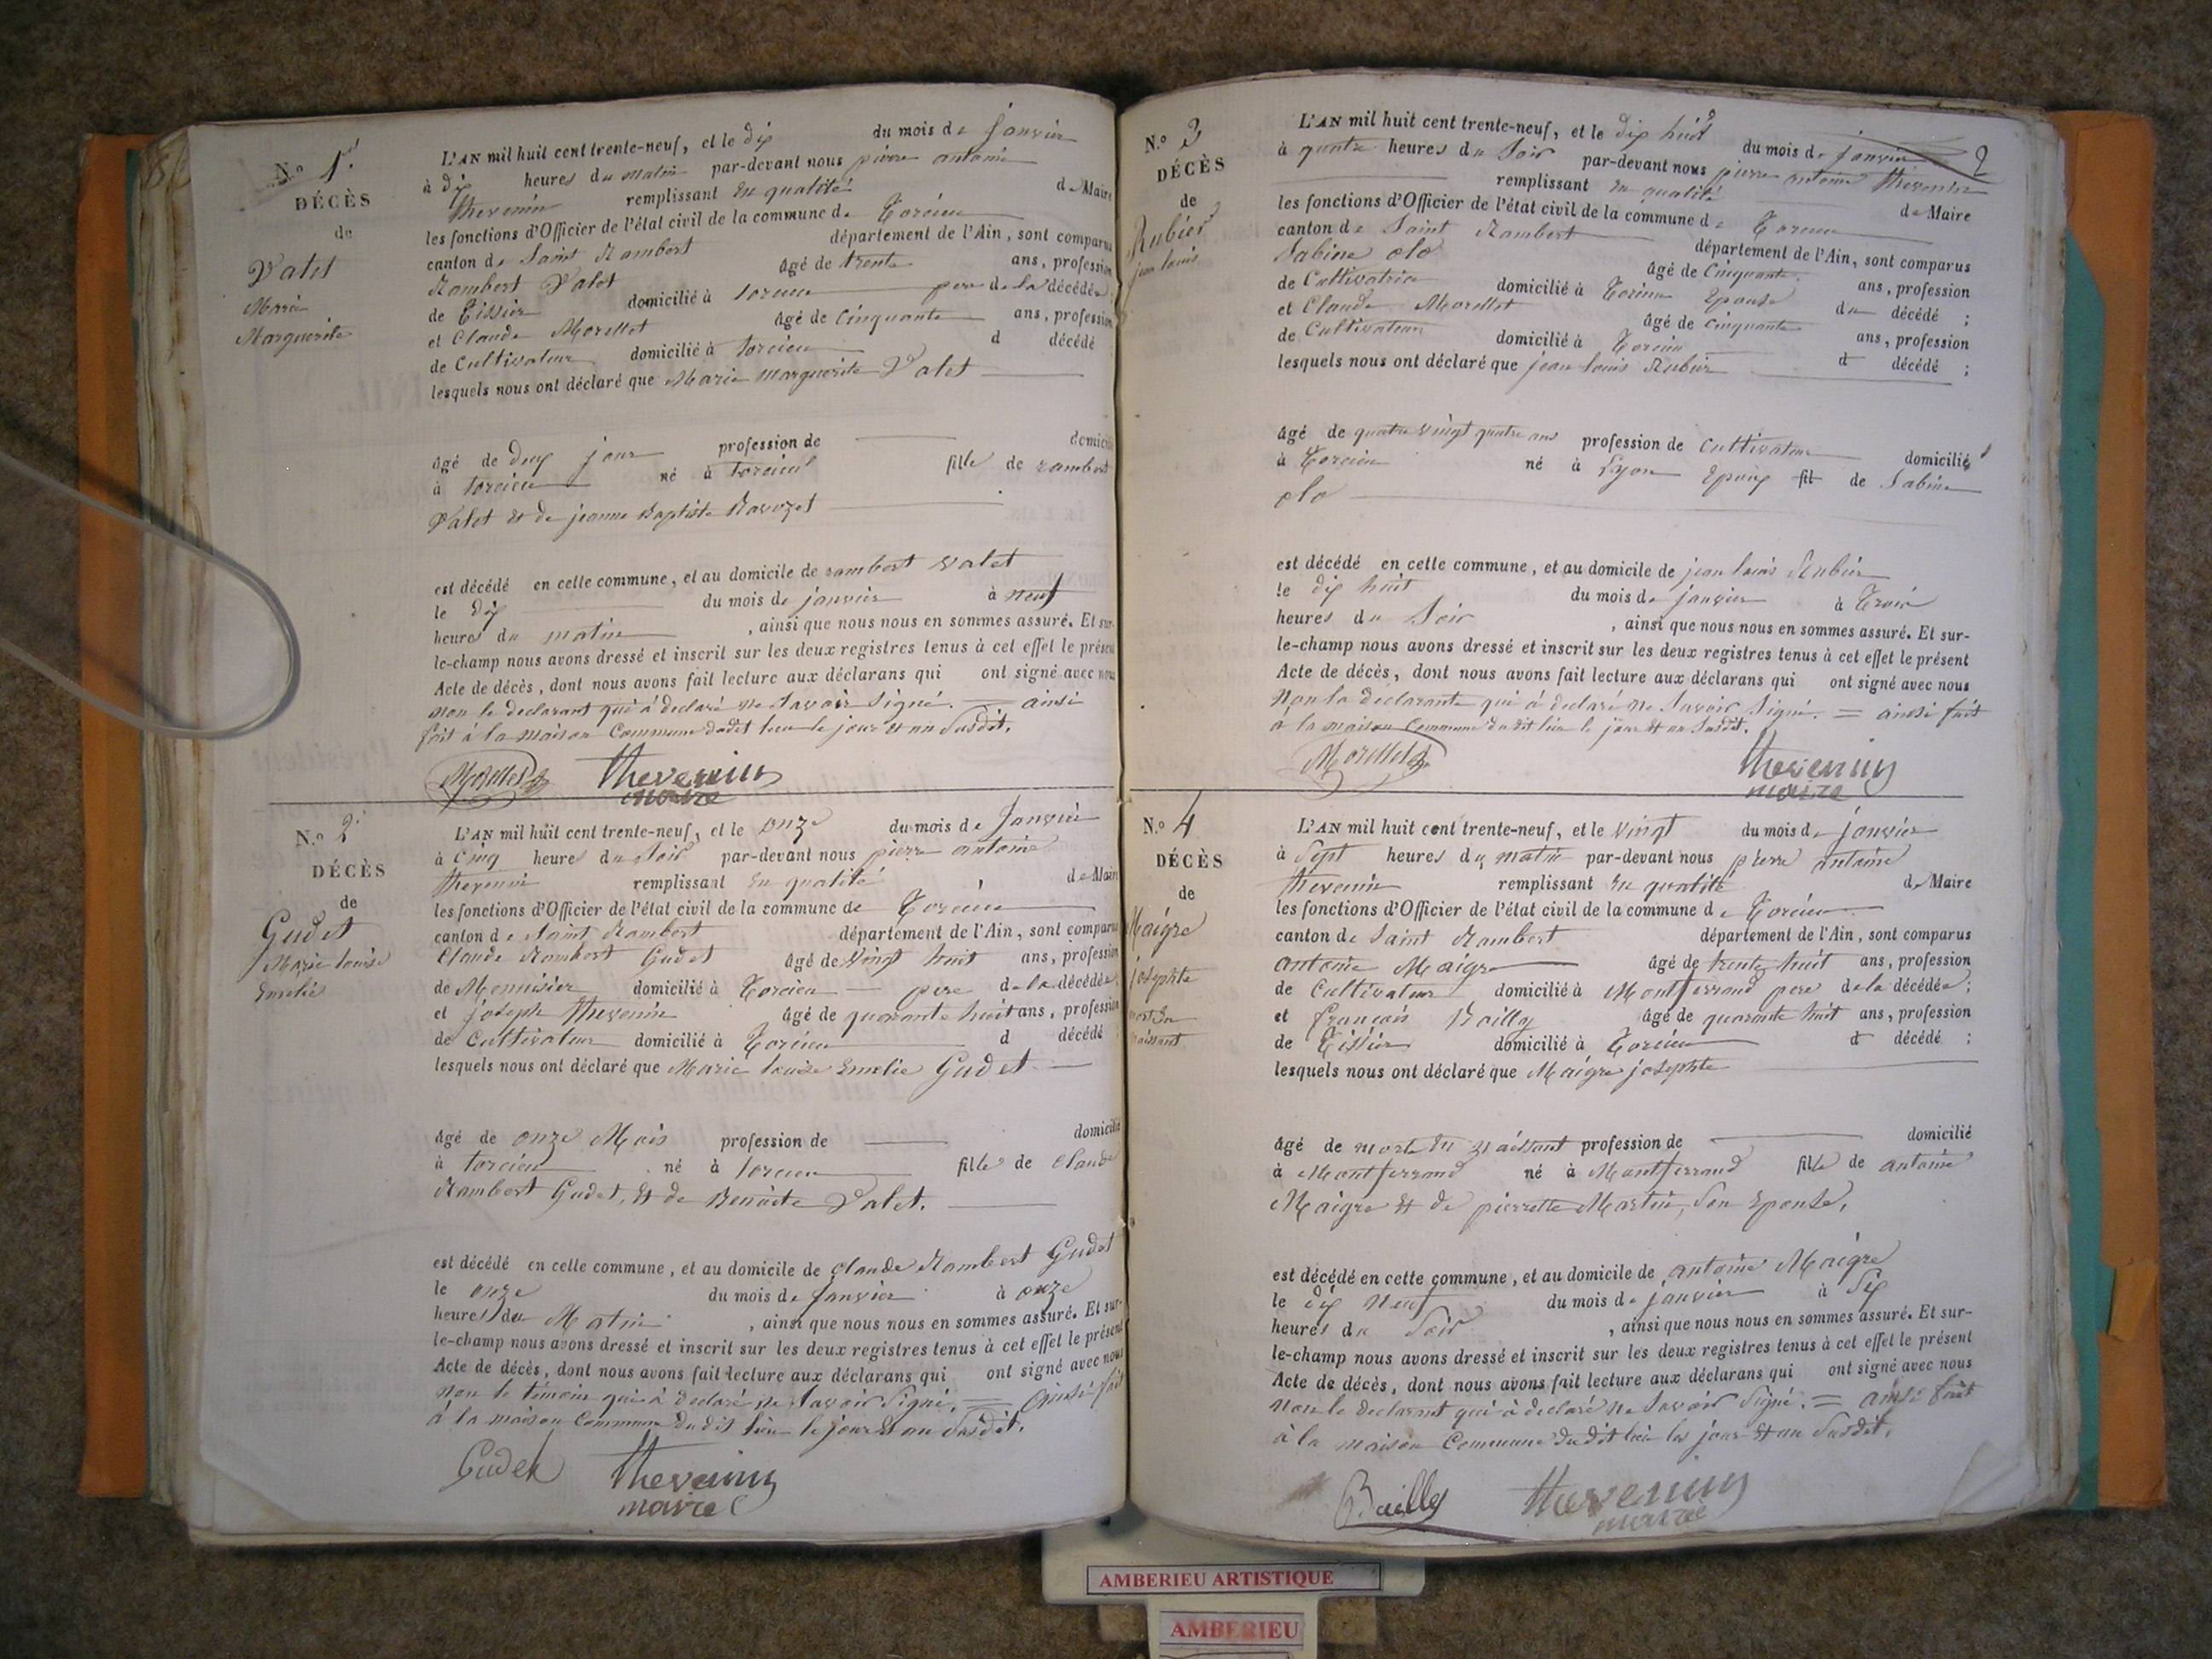 N.o 1.
DÉCÈS
de
Valet
Marie
Marguerite
L'AN mil huit cent trente-neuf, et le dix du mois de janvier
à dix heures du matin par-devant nous pierre antoine
thevenin remplissant en qualité de Maire
les fonctions d'Officier de l'état civil de la commune de Torcieu
canton de Saint Rambert département de l'Ain, sont comparus
Rambert Valet âgé de trente ans, profession
de Tissier domicilié à torcieu pere de la décédée
et Claude Morellet âgé de Cinquante ans, profession
de Cultivateur domicilié à torcieu d décédé
lesquels nous ont déclaré que Marie Marguerite Valet
âgé de deux jour profession de domicilié
à torcieu né à torcieu fille de rambert
Valet et de jeanne Baptiste Ravozet
est décédé en cette commune, et au domicile de rambert valet
le dix du mois de janvier à neuf
heures du matin , ainsi que nous nous en sommes assuré. Et sur-
le-champ nous avons dressé et inscrit sur les deux registres tenus à cet effet le présent
Acte de décès, dont nous avons fait lecture aux déclarans qui ont signé avec nous
non le declarant qui à declaré ne Savoir Signé. = ainsi
fait à la maison Commune dudit lieu le jour et an Susdit.
Morellet thevenin
maire
N.o 2.
DÉCÈS
de
Gudet
Marie louise
Emelie
L'AN mil huit cent trente-neuf, et le onze du mois de Janvier
à Cinq heures du Soir par-devant nous pierre antoine
thevenin remplissant en qualité de Maire
les fonctions d'Officier de l'état civil de la commune de Torcieu
canton de Saint Rambert département de l'Ain, sont comparus
Claude Rambert Gudet âgé de Vingt huit ans, profession
de Menuisier domicilié à Torcieu pere de la décédée
et joseph thevenin âgé de quarante huit ans, profession
de Cultivateur domicilié à Torcieu d décédé
lesquels nous ont déclaré que Marie louise Emelie Gudet
âgé de onze Mois profession de domicilié
à torcieu né à torcieu fille de Claude
Rambert Gudet, et de Benoite Valet.
est décédé en cette commune, et au domicile de Claude Rambert Gudet
le onze du mois de Janvier à onze
heures du Matin , ainsi que nous nous en sommes assuré. Et sur-
le-champ nous avons dressé et inscrit sur les deux registres tenus à cet effet le présent
Acte de décès, dont nous avons fait lecture aux déclarans qui ont signé avec nous
non le témoin qui à declaré ne Savoir Signé. = ainsi fait
à la maison Commune du dit lieu le jour et an Susdit.
Gudet thevenin
maire
2
N.o 3
DÉCÈS
de
Rubier
jean louis
L'AN mil huit cent trente-neuf, et le dix huit du mois de janvier
à quatre heures du Soir par-devant nous pierre antoine thevenin
remplissant en qualité de Maire
les fonctions d'Officier de l'état civil de la commune de Torcieu
canton de Saint Rambert département de l'Ain, sont comparus
Sabine olo âgé de Cinquante ans, profession
de Cultivatrice domicilié à Torcieu Epouse du décédé ;
et Claude Morellet âgé de cinquante ans, profession
de Cultivateur domicilié à Torcieu d décédé ;
lesquels nous ont déclaré que jean louis Rubier
âgé de quatre vingt quatre ans profession de Cultivateur domicilié
à Torcieu né à Lyon Epoux fil de Sabine
olo
est décédé en cette commune, et au domicile de jean louis Rubier
le dix huit du mois de janvier à Trois
heures du Soir , ainsi que nous nous en sommes assuré. Et sur-
le-champ nous avons dressé et inscrit sur les deux registres tenus à cet effet le présent
Acte de décès, dont nous avons fait lecture aux déclarans qui ont signé avec nous
Non la declarante qui à declaré ne Savoir Signé. = ainsi fait
à la maison Commune du dit lieu le jour et an Susdit.
Morellet thevenin
maire
N.o 4
DÉCÈS
de
Maigre
josephte
mort En
naissant
L'AN mil huit cent trente-neuf, et le vingt du mois de janvier
à Sept heures du matin par-devant nous pierre antoine
thevenin remplissant en qualité de Maire
les fonctions d'Officier de l'état civil de la commune de Torcieu
canton de Saint Rambert département de l'Ain, sont comparus
antoine Maigre âgé de trente huit ans, profession
de Cultivateur domicilié à Montferrand pere de la décédée ;
et francois Bailly âgé de quarante huit ans, profession
de Tissier domicilié à Torcieu d décédé ;
lesquels nous ont déclaré que Maigre josephte
âgé de morte En naissant profession de domicilié
à Montferrand né à Montferrand fille de antoine
Maigre et de pierrette Martin, Son Epouse.
est décédé en cette commune, et au domicile de antoine Maigre
le dix neuf du mois de janvier à Six
heures du Soir , ainsi que nous nous en sommes assuré. Et sur-
le-champ nous avons dressé et inscrit sur les deux registres tenus à cet effet le présent
Acte de décès, dont nous avons fait lecture aux déclarans qui ont signé avec nous
non le declarant qui à declaré ne Savoir Signé. = ainsi fait
à la maison Commune du dit lieu les jour et an Susdit.
Bailly thevenin
maire
AMBERIEU ARTISTIQUE
AMBERIEU